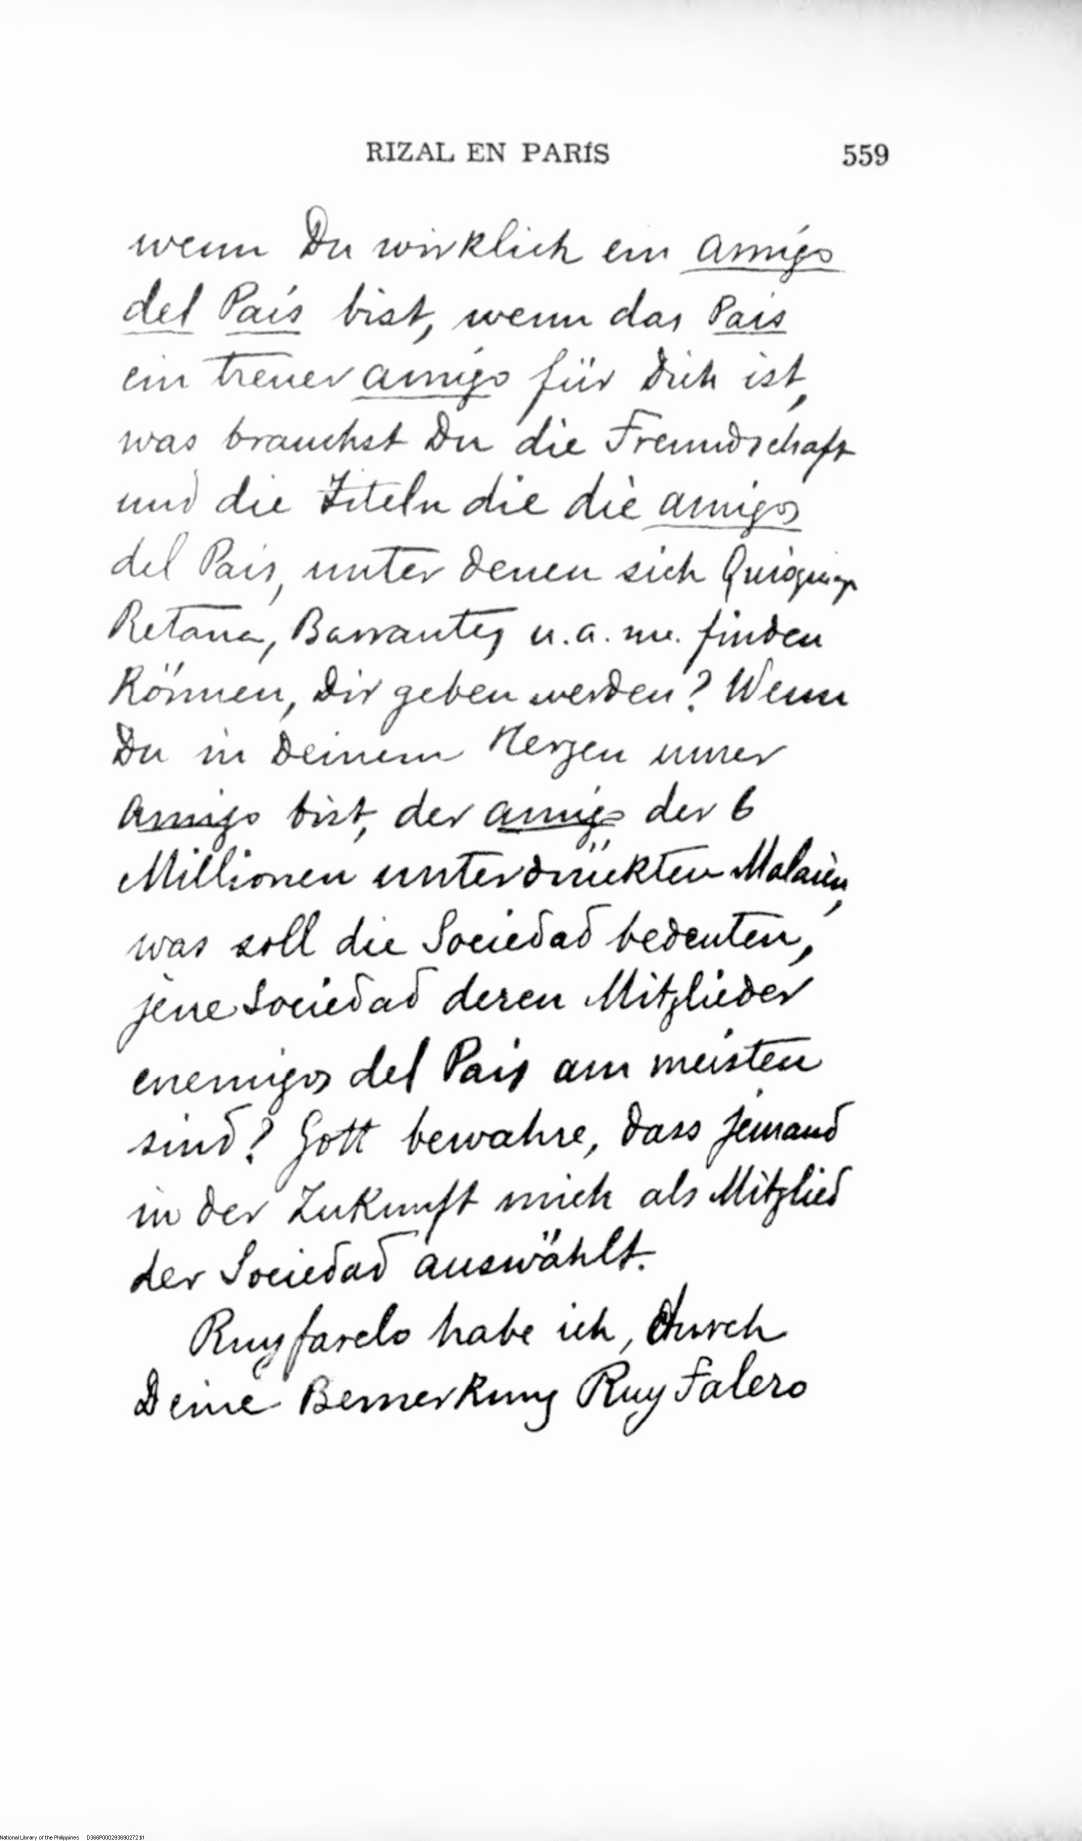 RIZAL EN PARÍS 559
wenn Du wirklich ein amigo
del País bist, wenn das País
ein treuer amigo für Dich ist,
was brauchst Du die Freundschaft
und die Titeln die die amigos
del Pais, unter denen sich Quioquiap
Retana, Barrantes u. a. m. finden
Können, Dir geben werden? Wenn
Du in Deinem Herzen unser
Amigo bist, der amigo der 6
Millionen unterdrückten Malaien,
was soll die Sociedad bedeuten,
jene Sociedad deren Mitglieder
enemigos del Pais am meisten
sind? Gott bewahre, dass jemand
in der Zukunft mich als Mitglied
der Sociedad auswählt.
Ruyfarelo habe ich, durch
Deine Bemerkung Ruy Falero
National Library of the Philippines